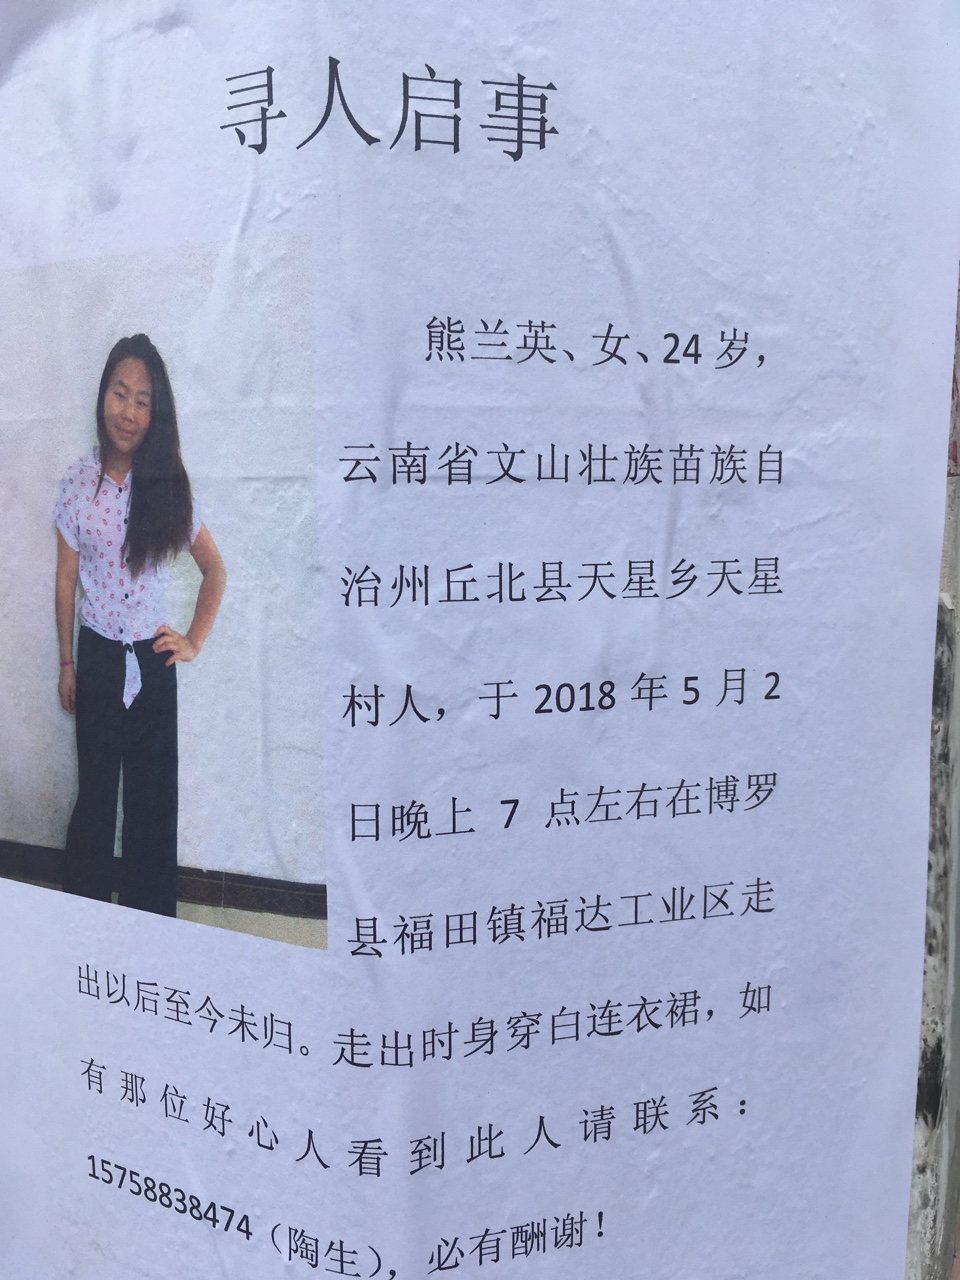 寻人启事
熊兰英、女、24岁，
云南省文山壮族苗族自
治州丘北县天星乡天星
村人，于 2018 年 5 月 2
日晚上 7 点左右在博罗
县福田镇福达工业区走
出以后至今未归。走出时身穿白连衣裙，如
有那位好心人看到此人请联系：
15758838474（陶生），必有酬谢！